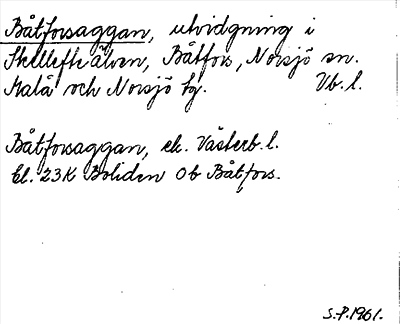 Båtforsaggan, utvidgning i
Skellefteälven, Båtfors, Norsjö sn.
Malå och Norsjö tg. Vb. l.
Båtforsaggan, ek. Västerb. l.
bl. 23K Boliden 0b Båtfors.
S.P. 1961.